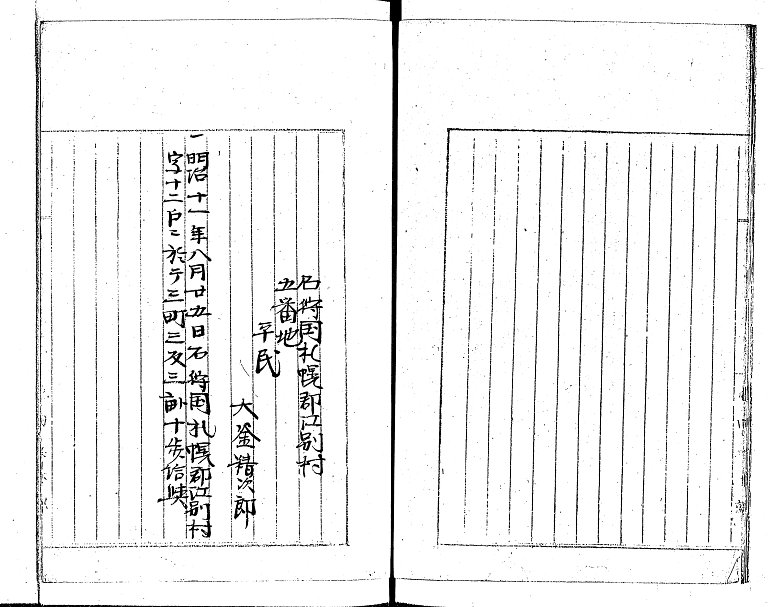 石狩国札幌郡江別村
五番地
平民
大釜精次郎
一明治十一年八月廿五日石狩国札幌郡江別村
字十二戸ニ於テ三町三反三畝十歩給與